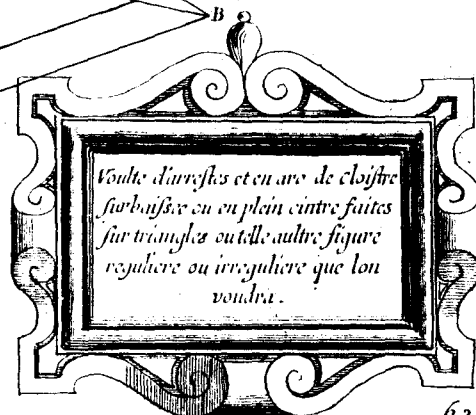 B
Voulte d'arrestes et en arc de cloistre
surbaissee ou en plein cintre faites
sur triangles ou telle aultre figure
reguliere ou irreguliere que lon
voudra.